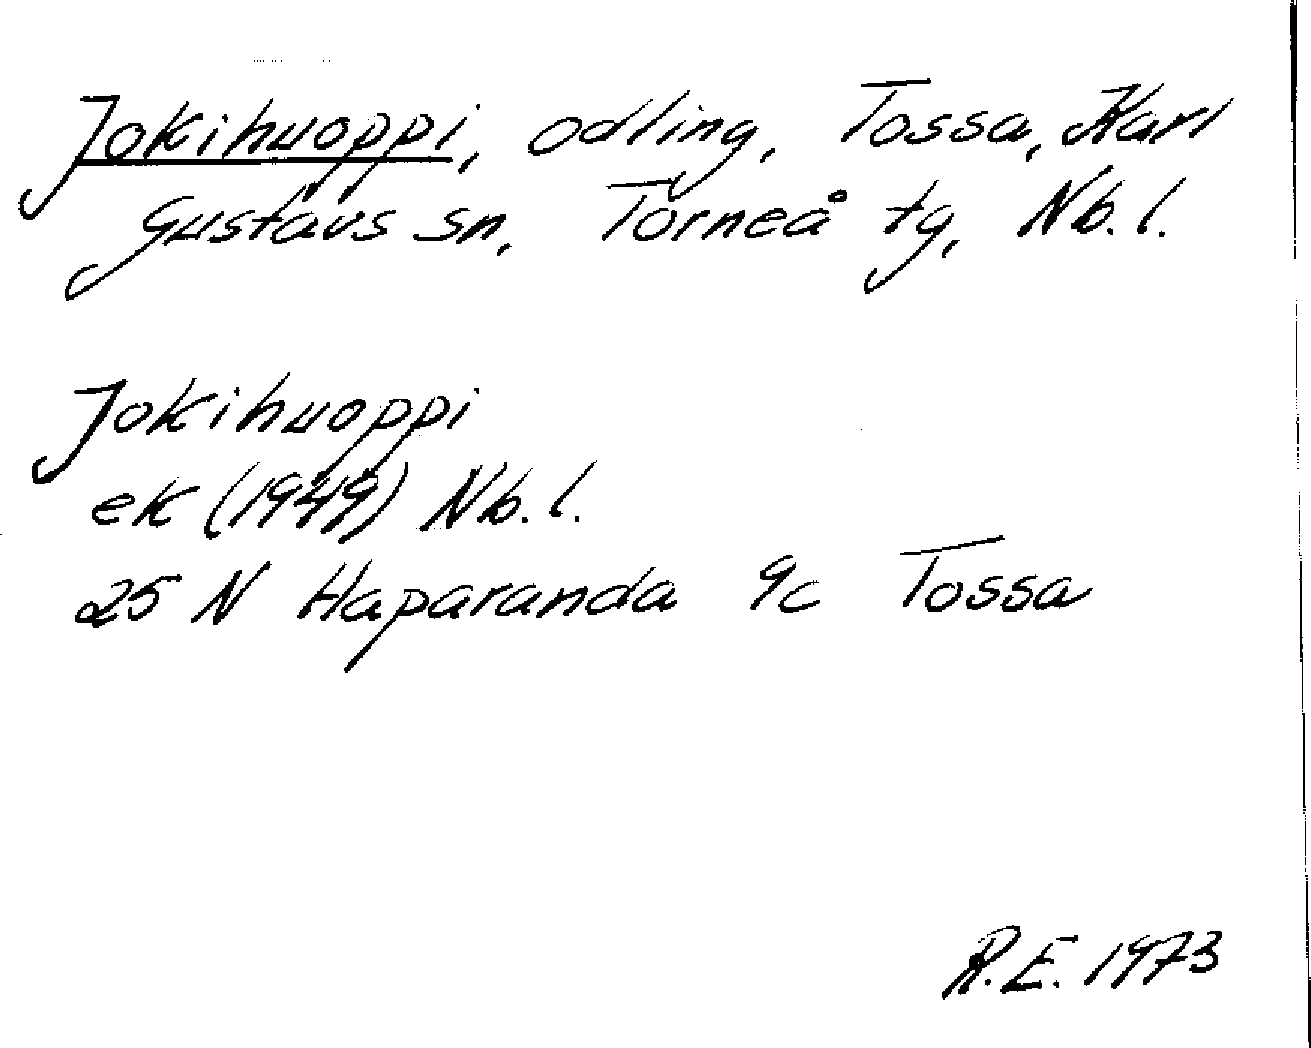 Jokihuoppi, odling, Tossa, Karl
Gustavs sn, Torneå tg, Nb. l.
Jokihuoppi
ek (1949) Nb. l.
25 N Haparanda 9c Tossa
R.E. 1973